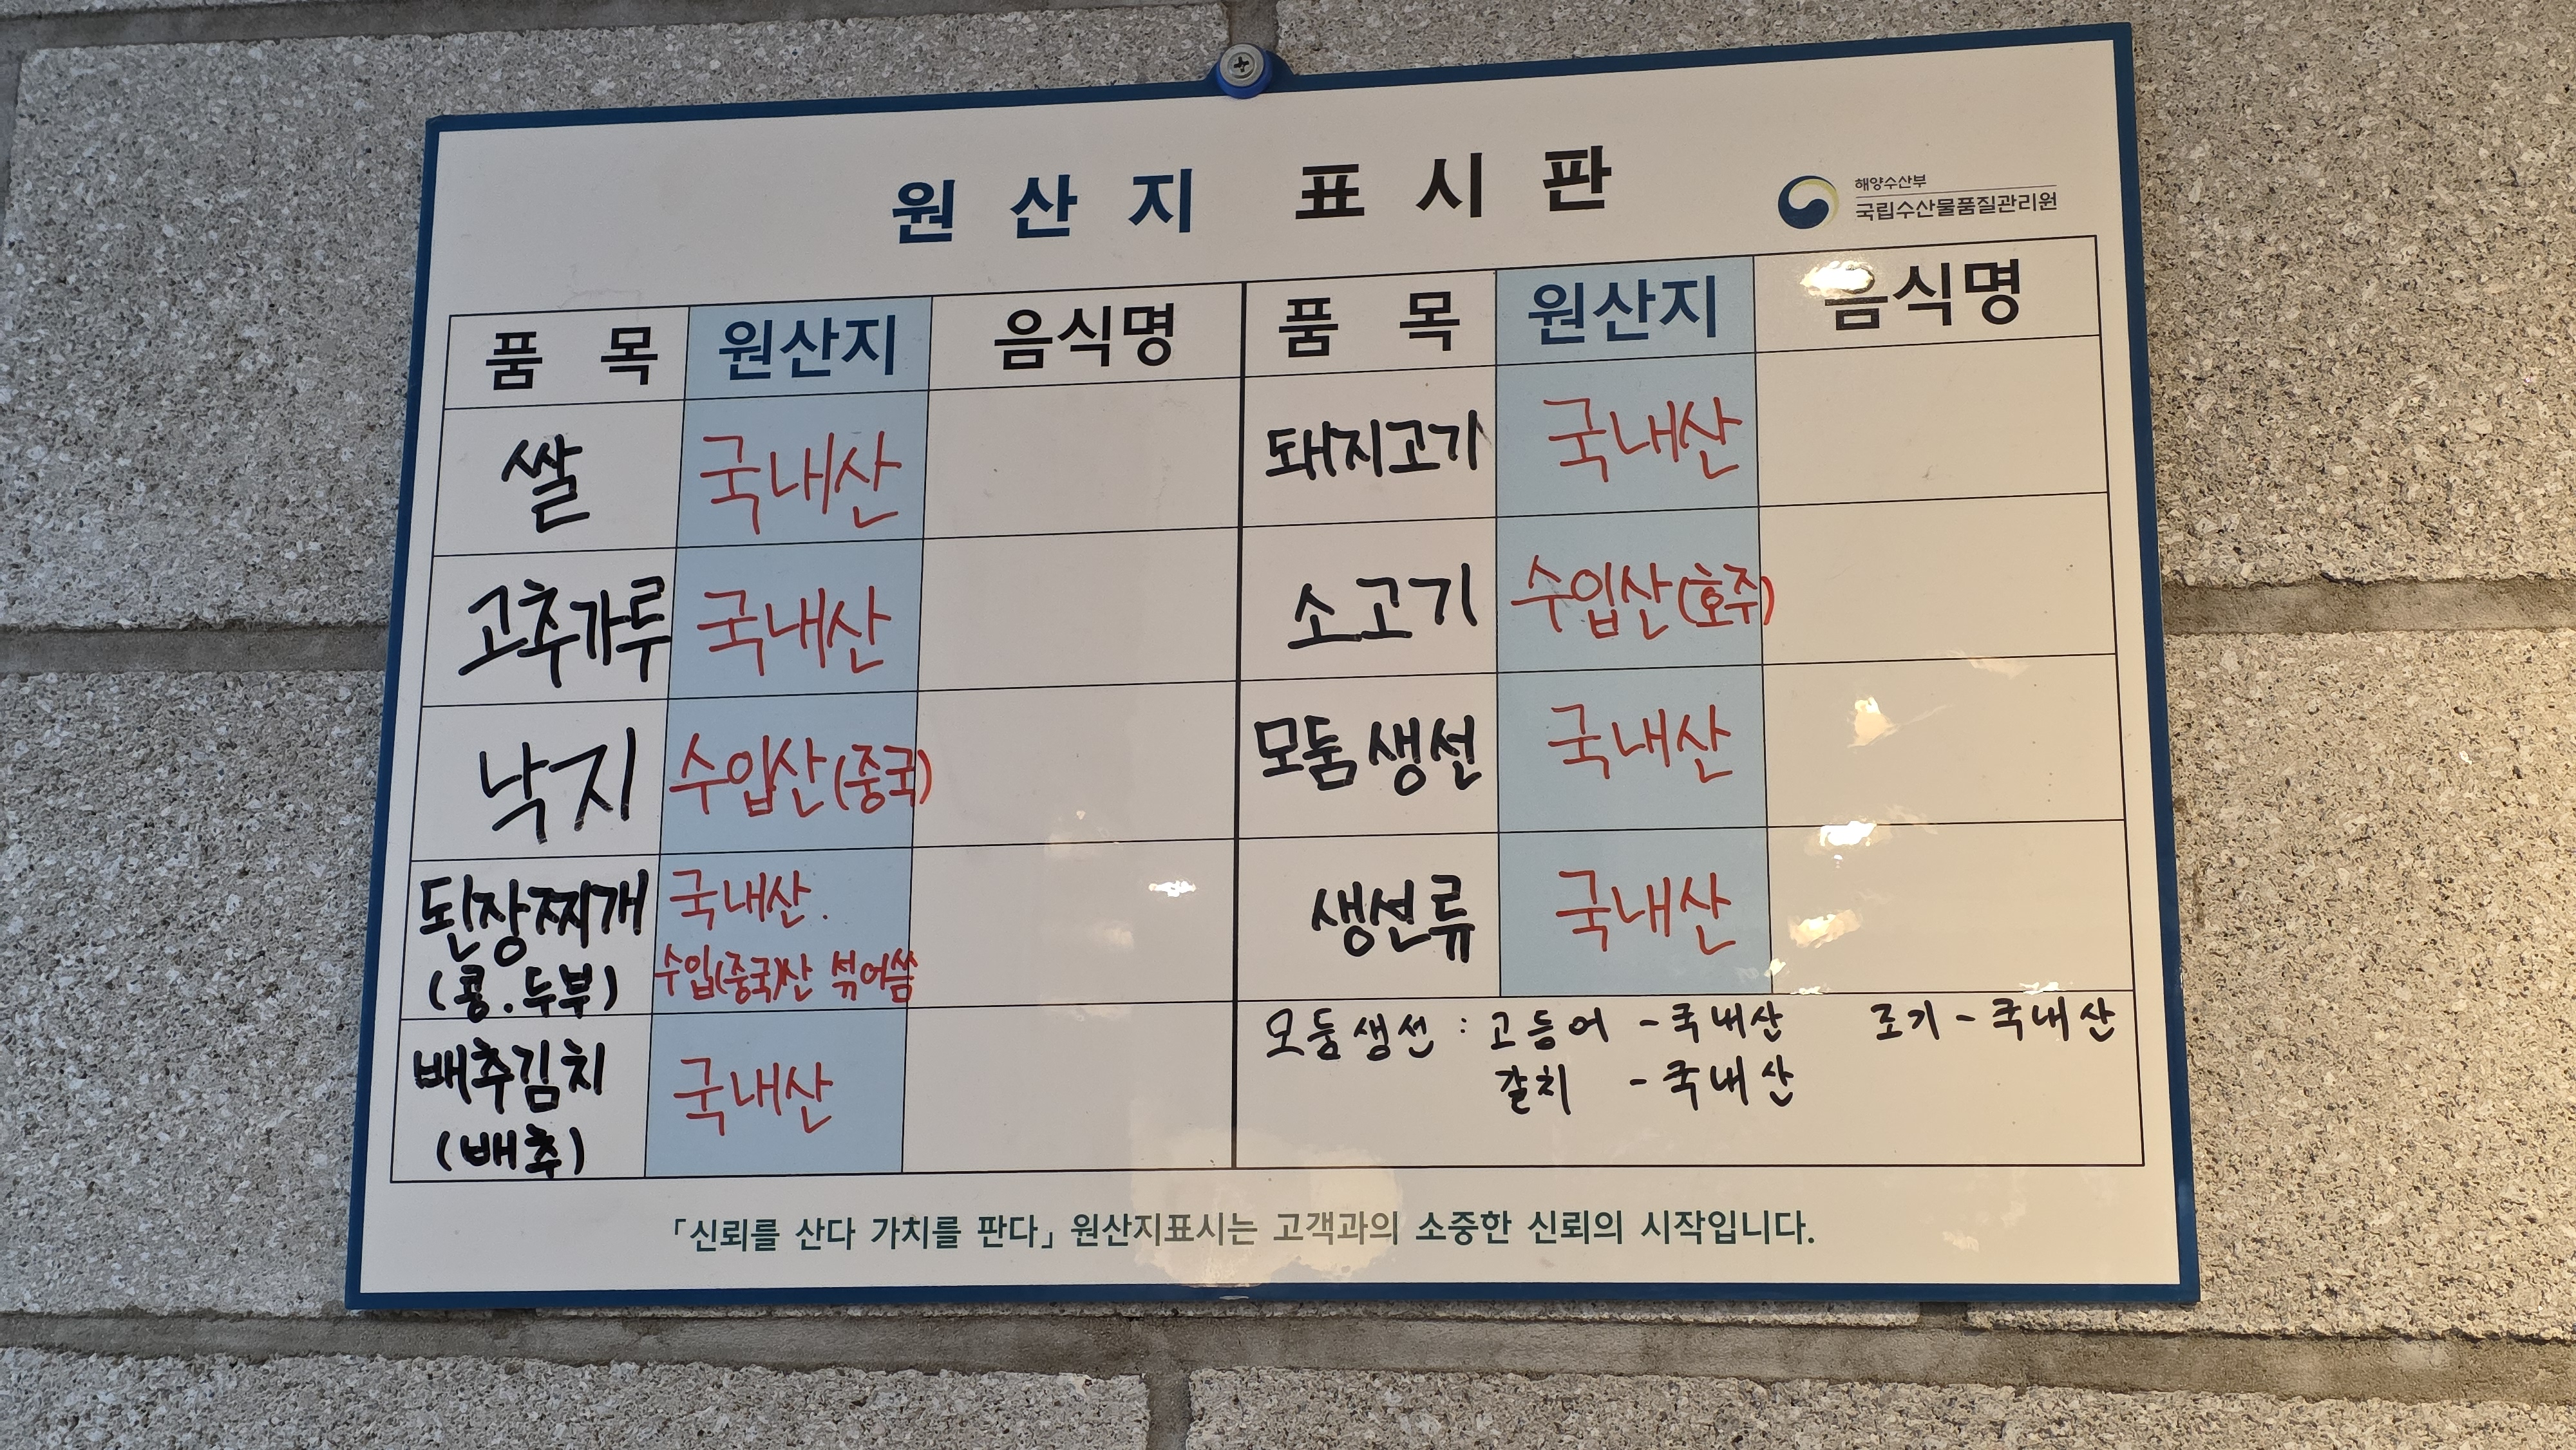 원산지 표시판
해양수산부
국립수산물품질관리원
품 목 원산지 음식명 품 목 원산지 음식명
쌀 국내산 돼지고기 국내산
고추가루 국내산 소고기 수입산(호주)
낙지 수입산(중국) 모둠생선 국내산
된장찌개 국내산. 생선류 국내산
(콩.두부) 수입(중국)산 섞어씀
배추김치 국내산
(배추)
모둠생선 : 고등어 - 국내산 조기 - 국내산
갈치 - 국내산
「신뢰를 산다 가치를 판다」 원산지표시는 고객과의 소중한 신뢰의 시작입니다.